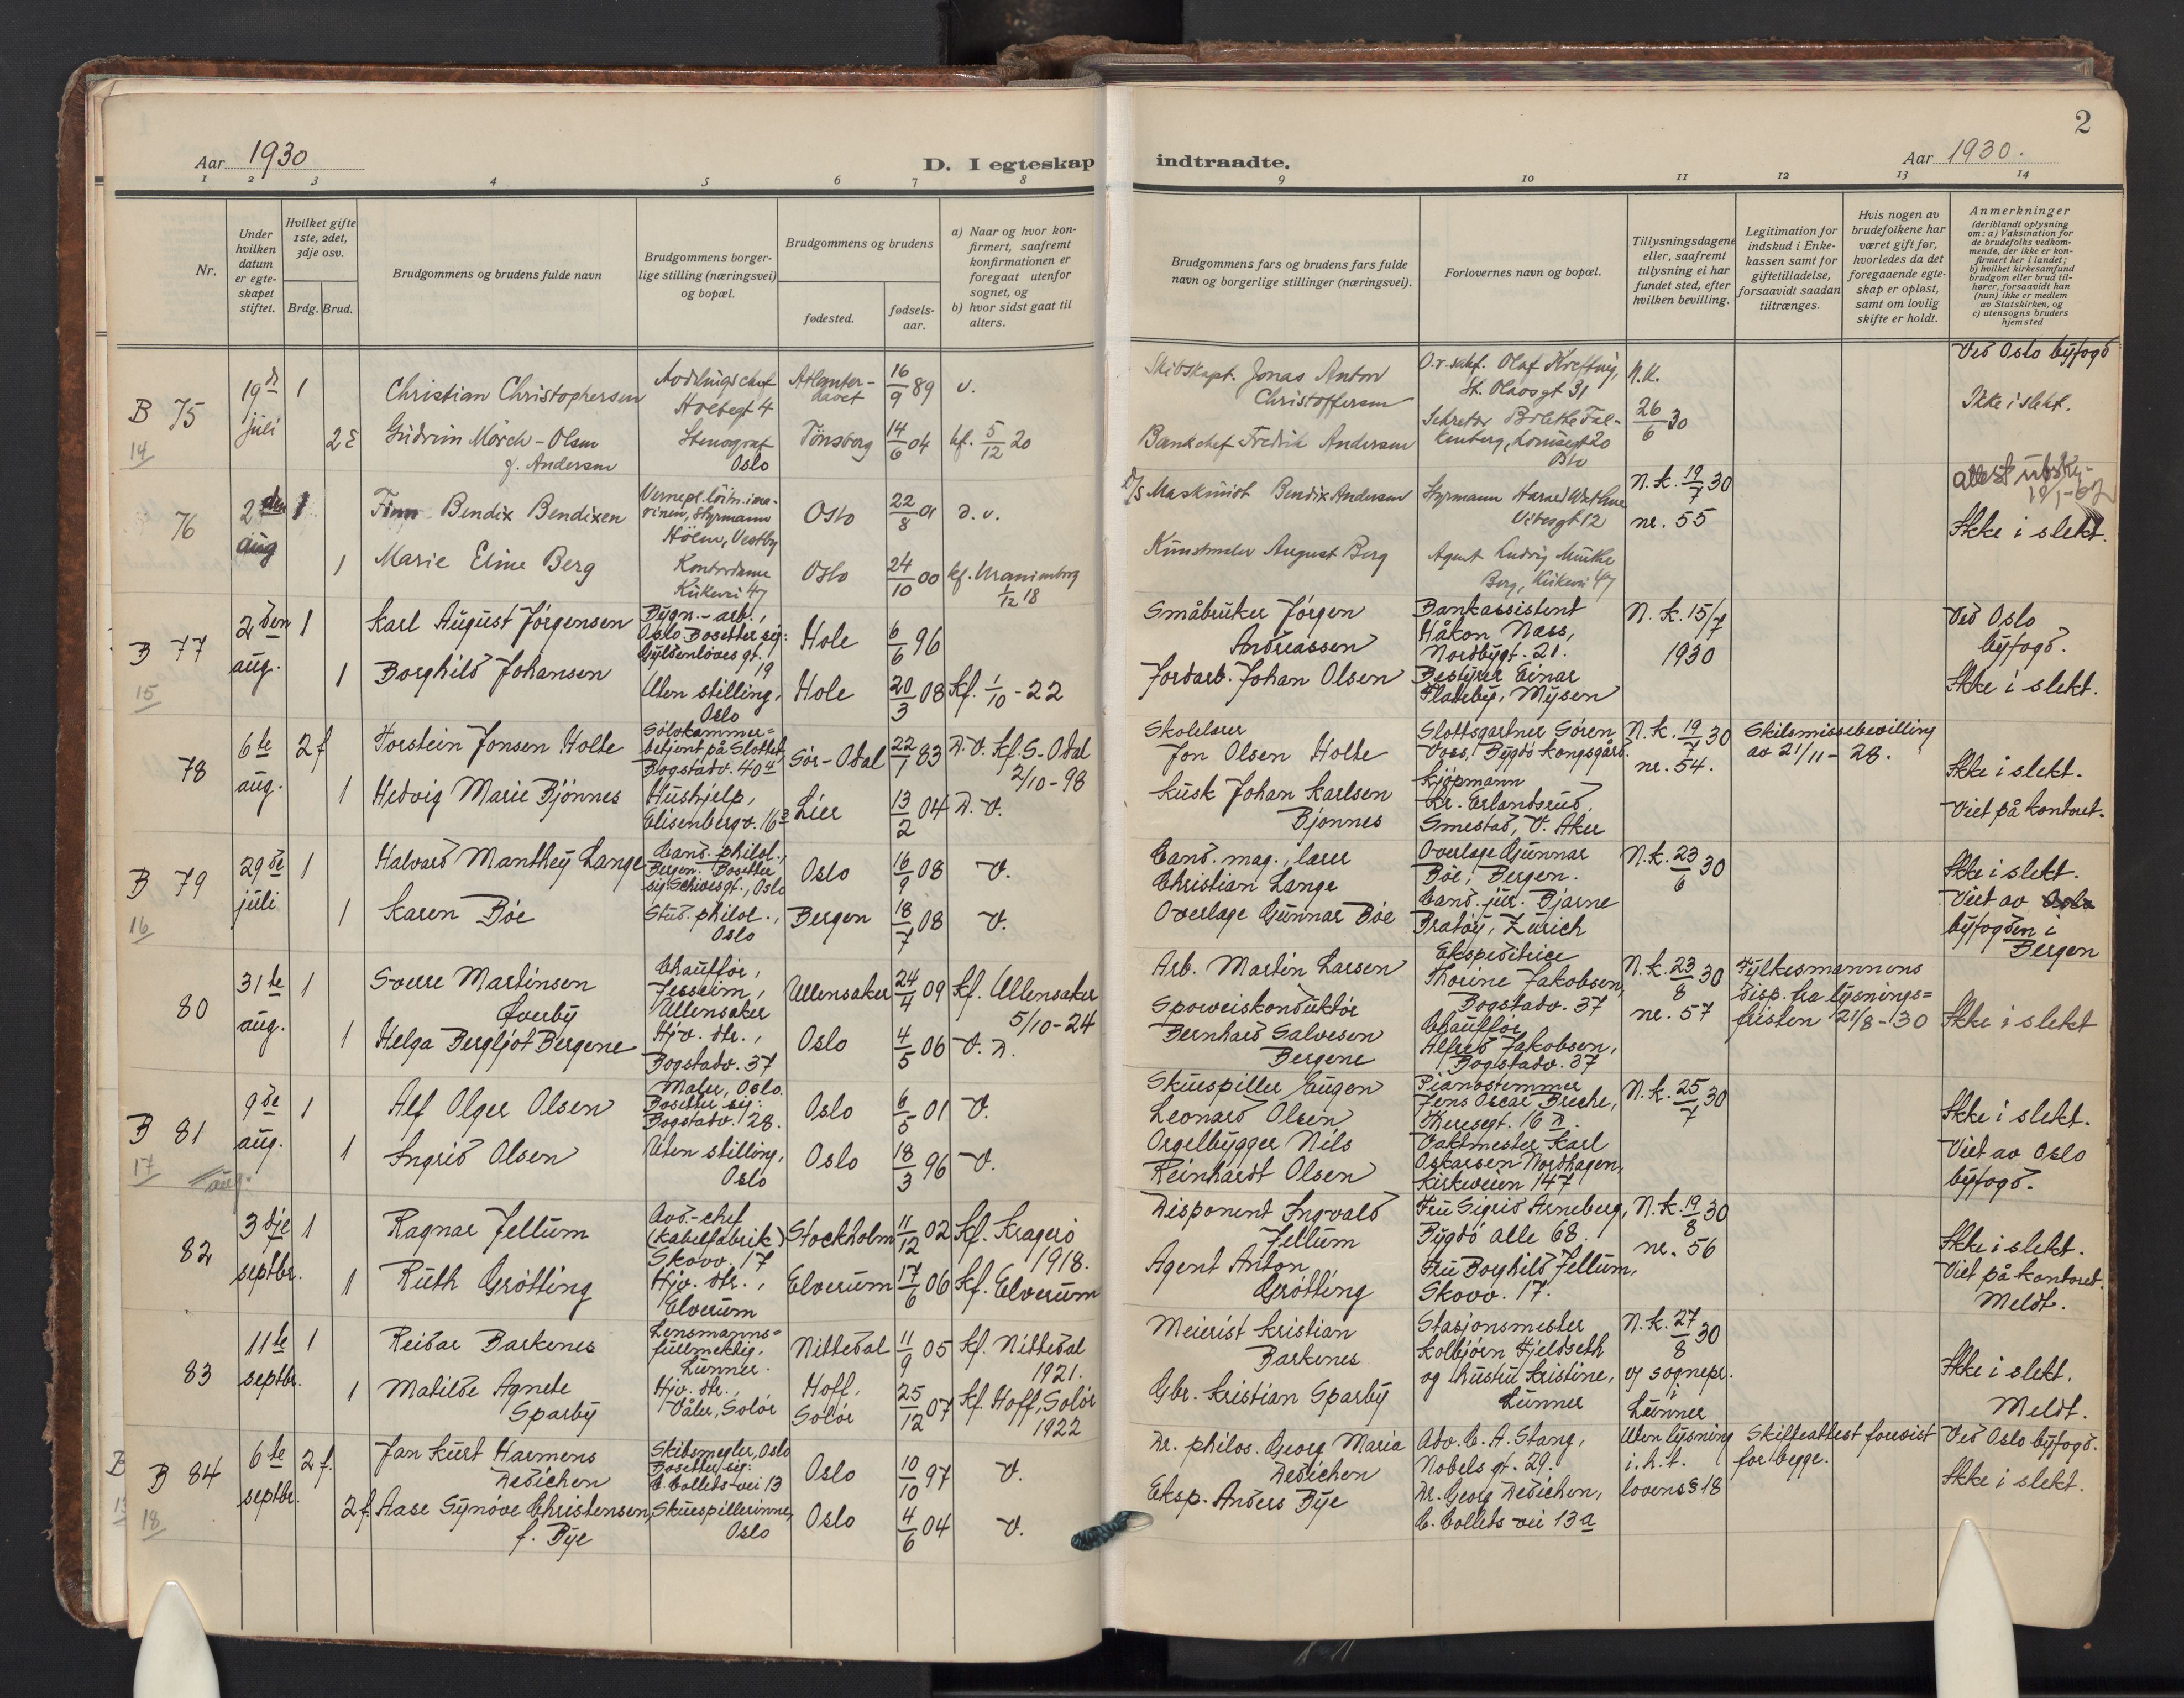 2
Aar 1930
D. I egteskap
indtraadte.
Aar 1930.
1 2 3 4 5 6 7 8
9 10 11 12 13 14
Nr.
Under hvilken datum er egteskapet stiftet.
Hvilket gifte 1ste, 2det, 3dje osv.
Brdg. Brud.
Brudgommens og brudens fulde navn
Brudgommens borgerlige stilling (næringsvei) og bopæl.
Brudgommens og brudens
fødested.
fødselsaar.
a) Naar og hvor konfirmert, saafremt konfirmationen er foregaat utenfor sognet, og
b) hvor sidst gaat til alters.
Brudgommens fars og brudens fars fulde navn og borgerlige stillinger (næringsvei).
Forlovernes navn og bopæl.
Tillysningsdagene eller, saafremt tillysning ei har fundet sted, efter hvilken bevilling.
Legitimation for indskud i Enkekassen samt for giftetilladelse, forsaavidt saadan tiltrænges.
Hvis nogen av brudefolkene har været gift før, hvorledes da det foregaaende egteskap er opløst, samt om lovlig skifte er holdt.
Anmerkninger
(deriblandt oplysning om: a) Vaksination for de brudefolks vedkommende, der ikke er konfirmert her i landet;
b) hvilket kirkesamfund brudgom eller brud tilhører, forsaavidt han (hun) ikke er medlem av Statskirken, og
c) utensogns bruders hjemsted
B 75
14
19de juli
1
Christian Christophersen
Avdelingschef
Holbegt 4
Atlanterhavet
16/9 89
v.
Skibskapt. Jonas Anton Christoffersen
O.r.sakf. Olaf Krefting,
St. Olavsgt 31
N.K.
26/6 30
Ved Oslo byfogd
Ikke i slekt.
2
Gudrun Mörch-Olsen
f. Andersen
Stenograf
Oslo
Tönsberg
14/6 04
kf. 5/12 20
Bankchef Fredrik Andersen
76
2den aug
1
Finn Bendix Bendixen
Vernepl. löitn. i marinen, Styrmann
Hölen, Vestby
Oslo
22/8 01
D.v.
Maskinist Bendix Andersen
Styrmann
Vibesgt 12
N.k. 19/7 30
nr. 55
Ikke i slekt.
1
Marie Eline Berg
Kontordame
Kirkevei 47
Oslo
24/10 00
kf. Uranienborg
1/12 18
August Berg
Agent Ludvig
Berg, Kirkevei 47
B 77
15
2den aug.
1
Karl August Jörgensen
Bygn.-arb.,
Oslo Bosetter sig:
Gyldenløves gt. 19
Hole
6/6 96
Småbruker Jörgen Andreassen
Bankassistent
Håkon Næss,
Nordbygt. 21.
N.k. 15/7
1930
Ved Oslo
byfogd.
Ikke i slekt.
1
Borghild Johansen
Uten stilling,
Oslo
Hole
20/3 08
Kf. 1/10-22
Jordarb. Johan Olsen
Bestyrer Einar
Flateby, Mysen
78
6te aug.
2 f
Torstein Jonsen Holte
Sölvkammerbetjent på Slottet,
Bogstadv. 40 4
Sör-Odal
22/1 83
D.V. Kf. S-Odal
2/10-98
Skolelærer
Jon Olsen Holte
Slottsgartner Sören
Voss, Bygdö Kongsgård.
N.k. 19/7 30
nr. 54.
Skilsmissebevilling
av 21/11-28.
Ikke i slekt.
1
Hedvig Marie Bjönnes
Hushjelp,
Elisenbergv. 16
Lier
13/2 04
D.V.
Kusk Johan Karlsen
Bjønnes
Kjöpmann
Kr. Erlandsrud,
Smestad, V. Aker
Viet på kontoret.
B 79
16
29de juli
1
Halvard Manthey Lange
Cand. philol.,
Bergen. Bosetter
sig Schivesgt., Oslo
Oslo
16/9 08
V.
Cand. mag., lærer
Christian Lange
Overlæge Gunnar
Böe, Bergen.
N.k. 23/6 30
Ikke i slekt.
1
Karen Böe
Stud. philol.,
Oslo
Bergen
18/7 08
V.
Overlæge Gunnar Böe
Cand. jur. Bjarne
Bratöy, Zürich
Viet av
byfogden i
Bergen
80
31te aug.
1
Sverre Martinsen
Överby
Chaufför,
Jessheim,
Ullensaker
Ullensaker
24/4 09
Kf. Ullensaker
5/10-24
Arb. Martin Larsen
Ekspeditrice
Thorine Jakobsen,
Bogstadv. 37
N.k. 23/8 30
nr. 57
Fylkesmannens
disp. fra lysningsfristen 21/8-30
Ikke i slekt
1
Helga Bergljot Bergene
Hjv. dtr.,
Bogstadv. 37
Oslo
4/5 06
V. D.
Sporveiskonduktör
Bernhard Salvesen
Bergene
Chauffør
Alfred Jakobsen,
Bogstadv. 37
B 81
17
9de aug.
1
Alf Olger Olsen
Maler, Oslo.
Bosetter sig:
Bogstadv. 28.
Oslo
6/5 01
V.
Skuespiller Eugen
Leonard Olsen
Pianostemmer
Jens Oscar Breche,
Theresegt. 16 D.
N.k. 25/7 30
Ikke i slekt.
1
Ingrid Olsen
Uten stilling,
Oslo
Oslo
18/3 96
V.
Orgelbygger Nils
Reinhardt Olsen
Vaktmester Karl
Oskarsen Nordhagen,
Kirkeveien 147
Viet av Oslo
byfogd.
aug.
82
3dje septbr.
1
Ragnar Jellum
Avd.-chef
(kabelfabrik)
Skovv. 17
Stockholm
11/12 02
Kf. Kragerö
1918.
Disponent Ingvald
Jellum
Fru Sigrid Arneberg,
Bygdö alle 68.
N.k. 19/8 30
nr. 56
Ikke i slekt.
1
Ruth Grötting
Hjv. dtr.,
Elverum
Elverum
17/6 06
Kf. Elverum
Agent Anton
Grötting
Fru Borghild Jellum,
Skovv. 17.
Viet på kontoret.
Meldt.
83
11te septbr.
1
Reidar Barkenes
Lensmannsfullmektig,
Lunner.
Nittedal
11/9 05
Kf. Nittedal
1921.
Meierist Kristian
Barkenes
Stasjonsmester
Kolbjörn Fjeldseth
og hustru Kristine,
Lunner
N.k. 27/8 30
og sognepr.
i
Lunner
Ikke i slekt.
1
Matilde Agnete
Sparby
Hjv. dtr.,
Våler, Solör
Hoff,
Solör
25/12 07
Kf. Hoff, Solör
1922
Gbr. Kristian Sparby
Meldt.
B 84
18
6te septbr.
2 f.
Jan Kurt Harmens
Dedichen
Skibsmegler, Oslo
Bosetter sig:
C. Colletts-vei 13
Oslo
10/10 97
V.
Dr. philos. Georg Maria
Dedichen
Adv. C. A. Stang,
Nobels gt. 29.
Uten lysning
i.h.t.
lovens § 18
Skifteattest forevist
for begge.
Ved Oslo byfogd.
Ikke i slekt.
2 f.
Aase Synöve Christensen,
f. Bye
Skuespillerinne,
Oslo
Oslo
4/6 04
V.
Eksp. Anders Bye
Dr. Georg Dedichen,
C. Colletts vei 13 a